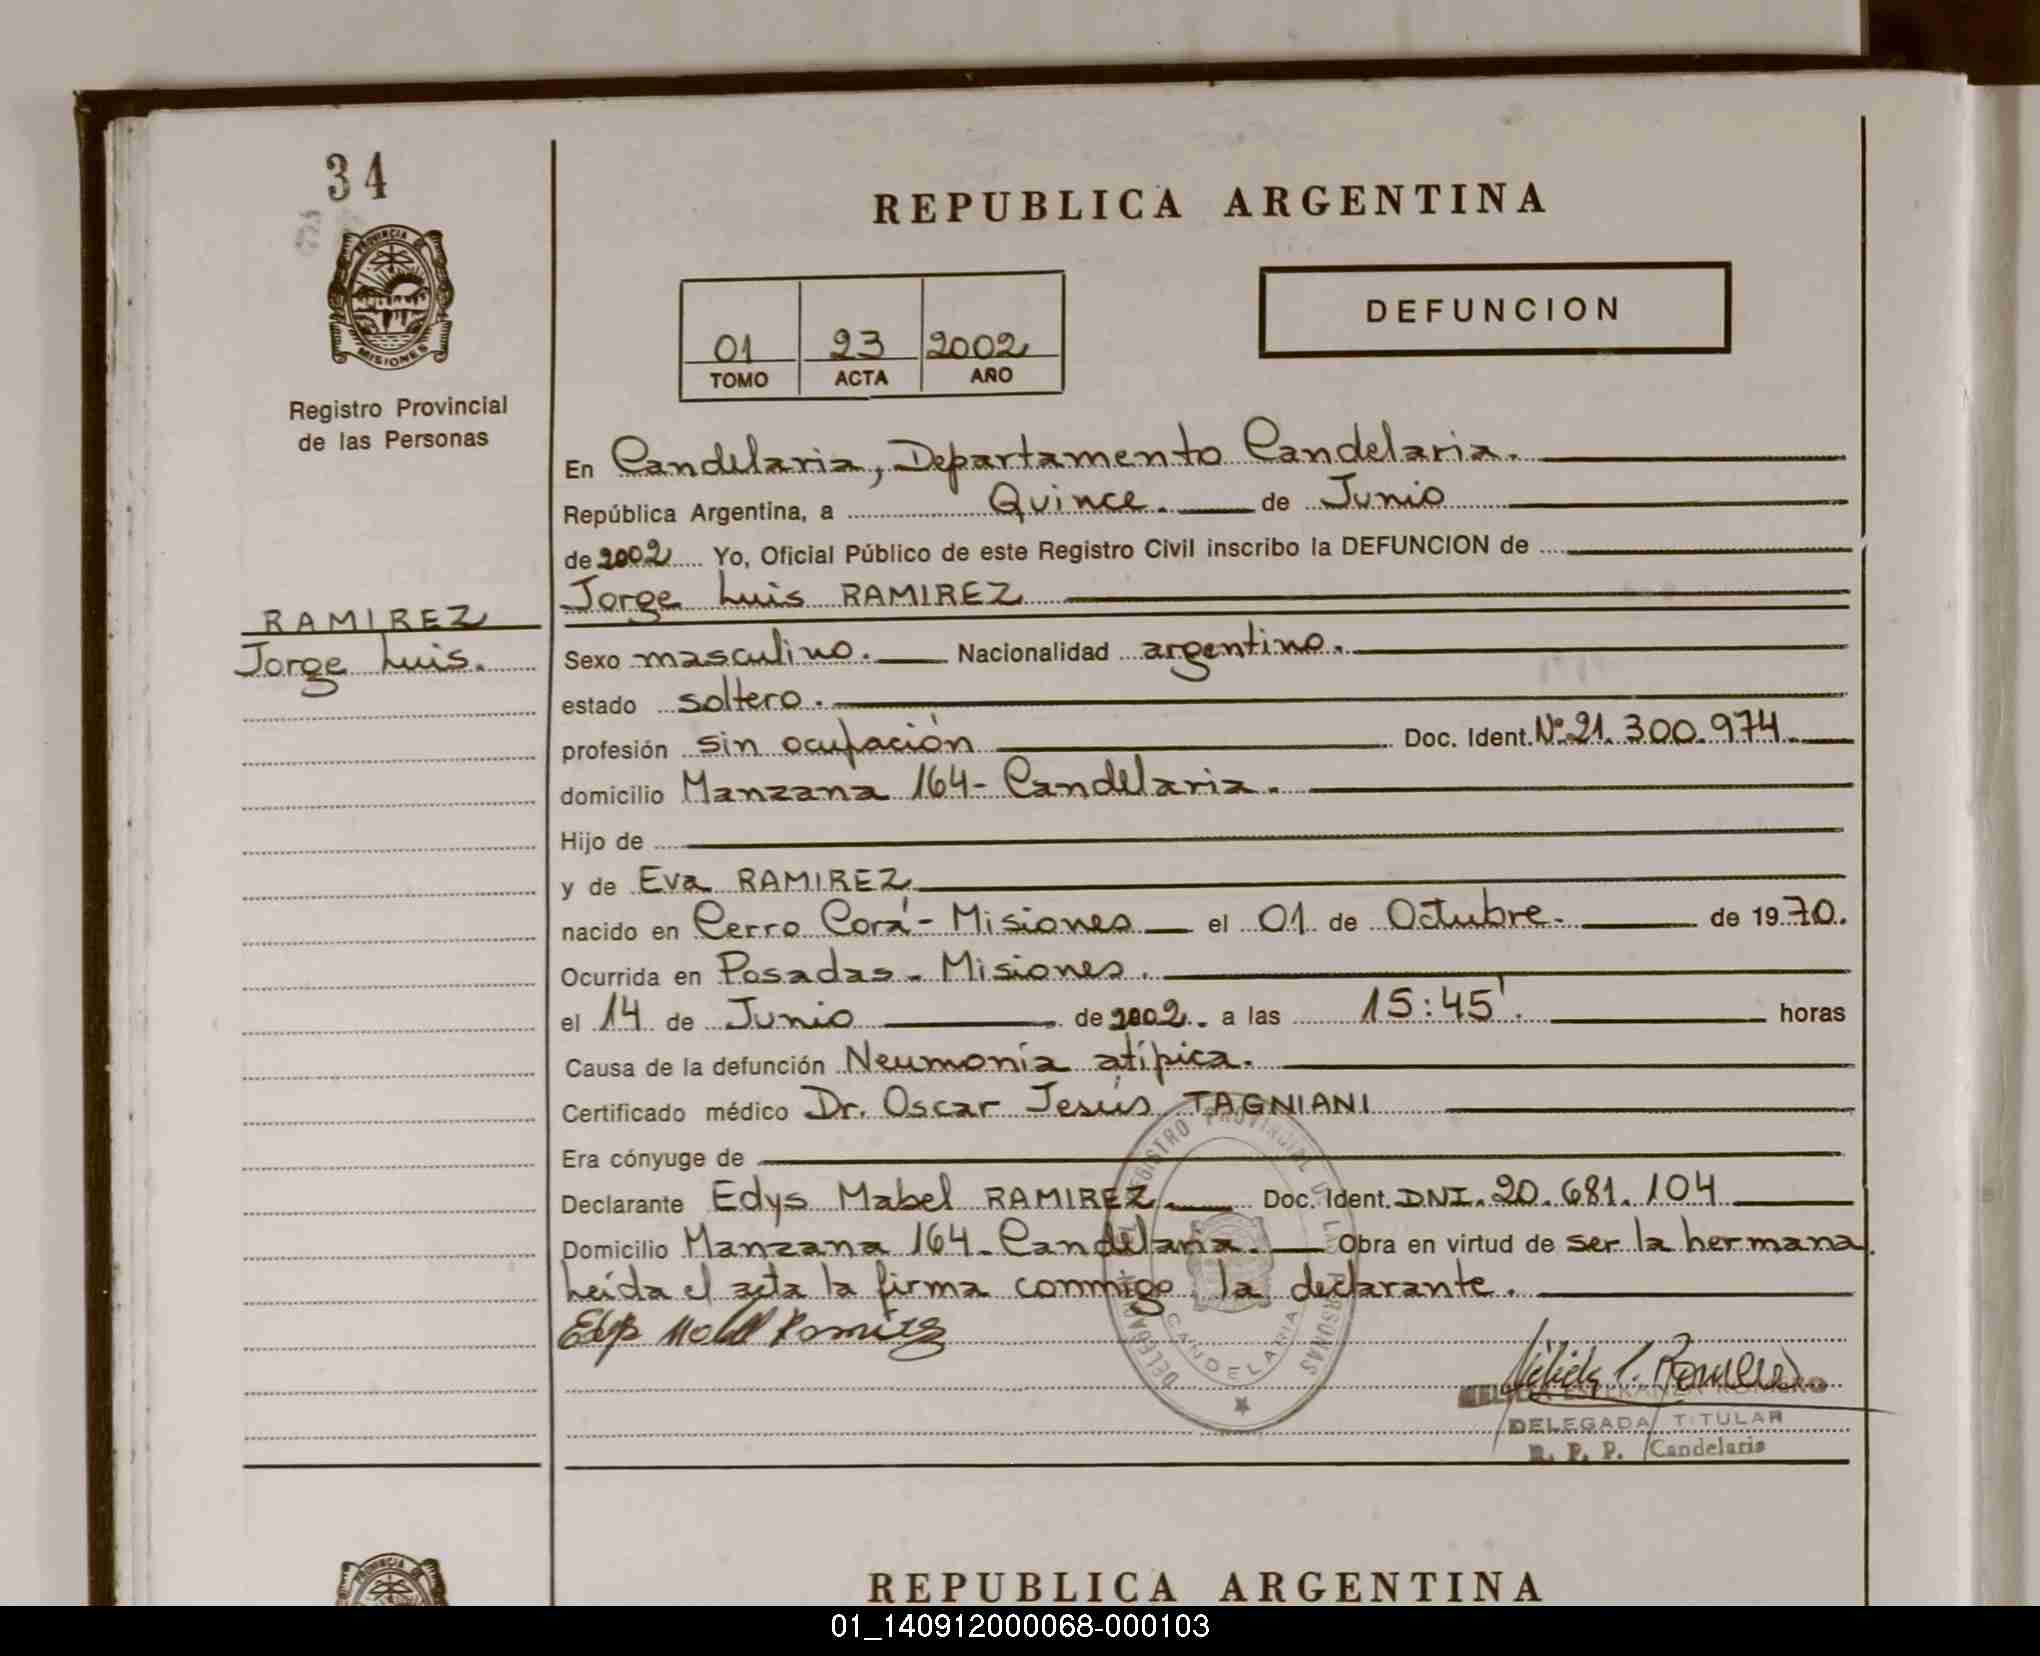 34
PROVINCIA DE
MISIONES
Registro Provincial
de las Personas
RAMIREZ
Jorge Luis.
REPUBLICA ARGENTINA
01 23 2002
TOMO ACTA AÑO
DEFUNCION
En Candelaria, Departamento Candelaria.
República Argentina, a Quince. de Junio
de 2002 Yo, Oficial Público de este Registro Civil inscribo la DEFUNCION de
Jorge Luis RAMIREZ
Sexo masculino. Nacionalidad argentino.
estado soltero.
profesión sin ocupación Doc. Ident. Nº 21.300.974.
domicilio Manzana 164- Candelaria.
Hijo de
y de Eva RAMIREZ
nacido en Cerro Corá - Misiones el 01 de Octubre. de 1970.
Ocurrida en Posadas - Misiones.
el 14 de Junio de 2002. a las 15:45'. horas
Causa de la defunción Neumonía atípica.
Certificado médico Dr. Oscar Jesús TAGNIANI
Era cónyuge de
Declarante Edys Mabel RAMIREZ. Doc. Ident. DNI. 20.681.104
Domicilio Manzana 164- Candelaria. Obra en virtud de ser la hermana.
Leída el acta la firma conmigo la declarante.
Edys Mabel Ramirez
REGISTRO PROVINCIAL DE LAS PERSONAS
CANDELARIA
ROMERO
DELEGADA TITULAR
R. P. P. Candelaria
PROVINCIA
REPUBLICA ARGENTINA
01_140912000068-000103